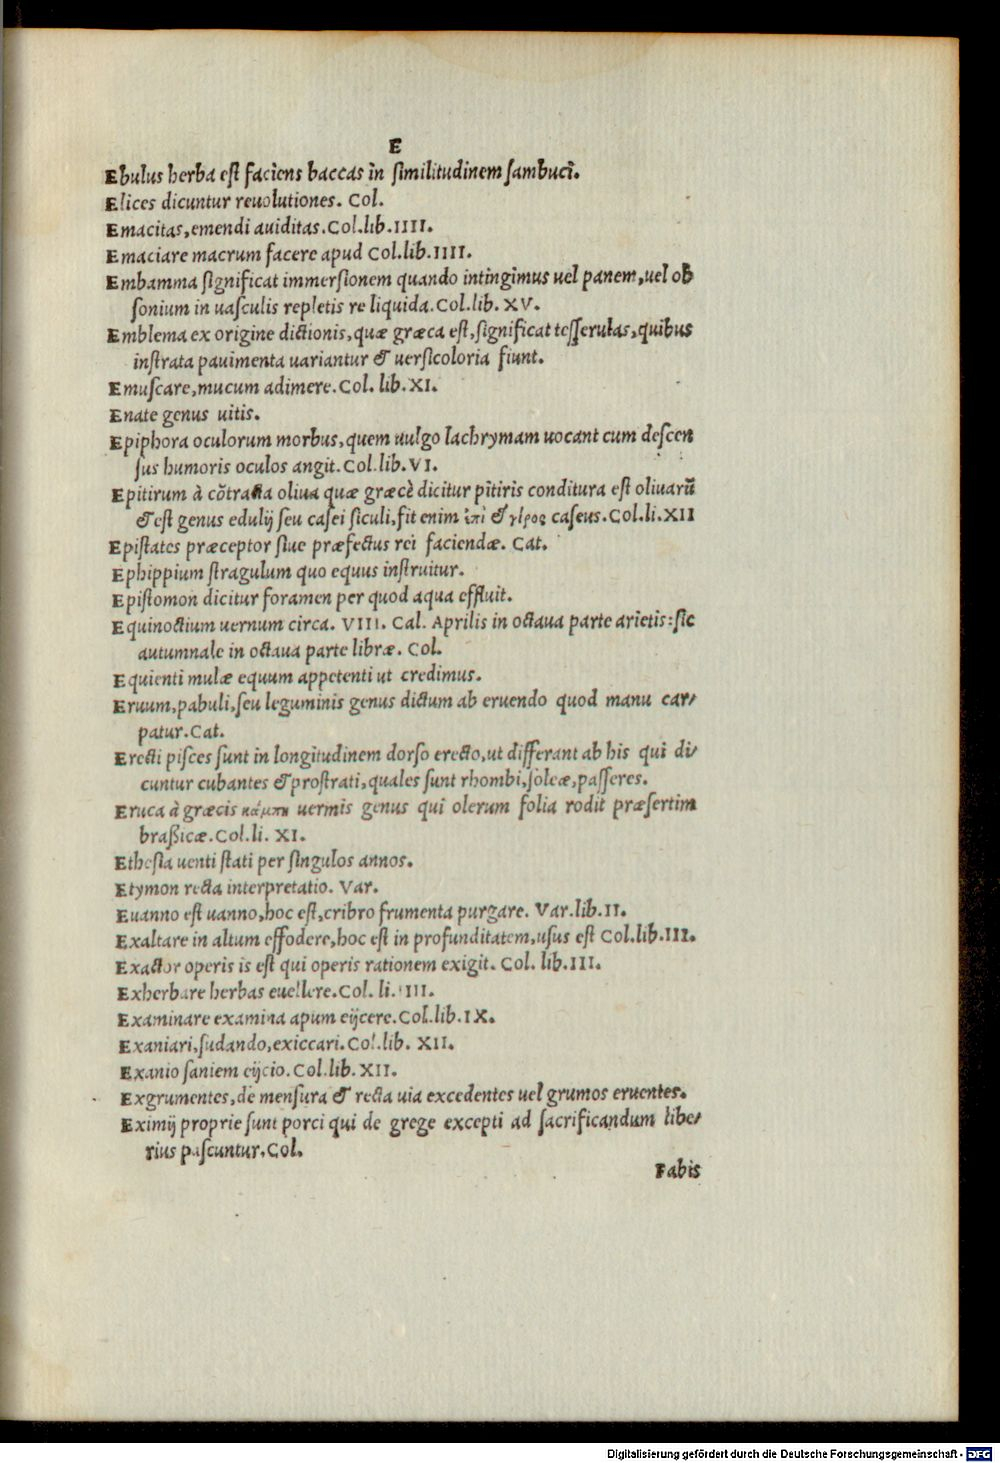 E
Ebulus herba est faciens baccas in similitudinem sambuci.
Elices dicuntur reuolutiones. Col.
Emacitas, emendi auiditas. Col. lib. IIII.
Emaciare macrum facere apud Col. lib. IIII.
Embamma significat immersionem quando intingimus uel panem, uel ob
sonium in uasculis repletis re liquida. Col. lib. XV.
Emblema ex origine dictionis, quæ græca est, significat tesserulas, quibus
instrata pauimenta uariantur & uersicoloria fiunt.
Emuscare, mucum adimere. Col. lib. XI.
Enate genus uitis.
Epiphora oculorum morbus, quem uulgo lachrymam uocant cum descen
sus humoris oculos angit. Col. lib. VI.
Epitirum à cõtracta oliua quæ græcè dicitur pitiris conditura est oliuarũ
& est genus edulij seu casei siculi, fit enim ἐπὶ & caseus. Col. li. XII
Epistates præceptor siue præfectus rei faciendæ. Cat.
Ephippium stragulum quo equus instruitur.
Epistomon dicitur foramen per quod aqua effluit.
Equinoctium uernum circa. VIII. Cal. Aprilis in octaua parte arietis: sic
autumnale in octaua parte libræ. Col.
Equienti mulæ equum appetenti ut credimus.
Eruum, pabuli, seu leguminis genus dictum ab eruendo quod manu car-
patur. Cat.
Erecti pisces sunt in longitudinem dorso erecto, ut differant ab his qui di-
cuntur cubantes & prostrati, quales sunt rhombi, soleæ, passeres.
Eruca à græcis κάμπη uermis genus qui olerum folia rodit præsertim
braßicæ. Col. li. XI.
Ethesia uenti stati per singulos annos.
Etymon recta interpretatio. Var.
Euanno est uanno, hoc est, cribro frumenta purgare. Var. lib. II.
Exaltare in altum effodere, hoc est in profunditatem, usus est Col. lib. III.
Exactor operis is est qui operis rationem exigit. Col. lib. III.
Exherbare herbas euellere. Col. li.
Examinare examina apum eijcere. Col. lib. IX.
Exaniari, sudando, exiccari. Col. lib. XII.
Exanio saniem eijcio. Col. lib. XII.
Exgrumentes, de mensura & recta uia excedentes uel grumos eruentes.
Eximij proprie sunt porci qui de grege excepti ad sacrificandum libe-
rius pascuntur. Col.
Fabis
Digitalisierung gefördert durch die Deutsche Forschungsgemeinschaft - DFG